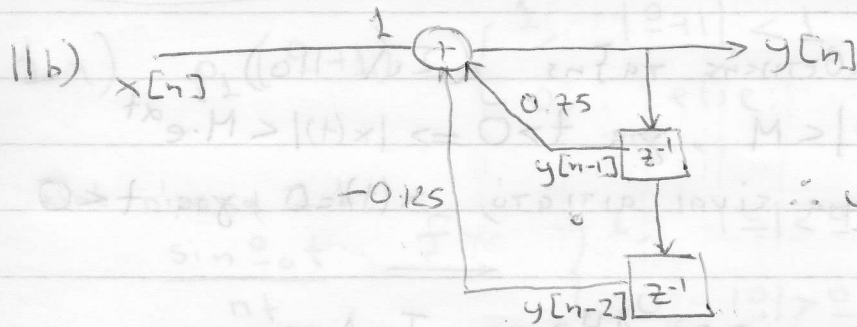 1
11b) x[n] + y[n]
0.75
y[n-1] z⁻¹
-0.125
y[n-2] z⁻¹